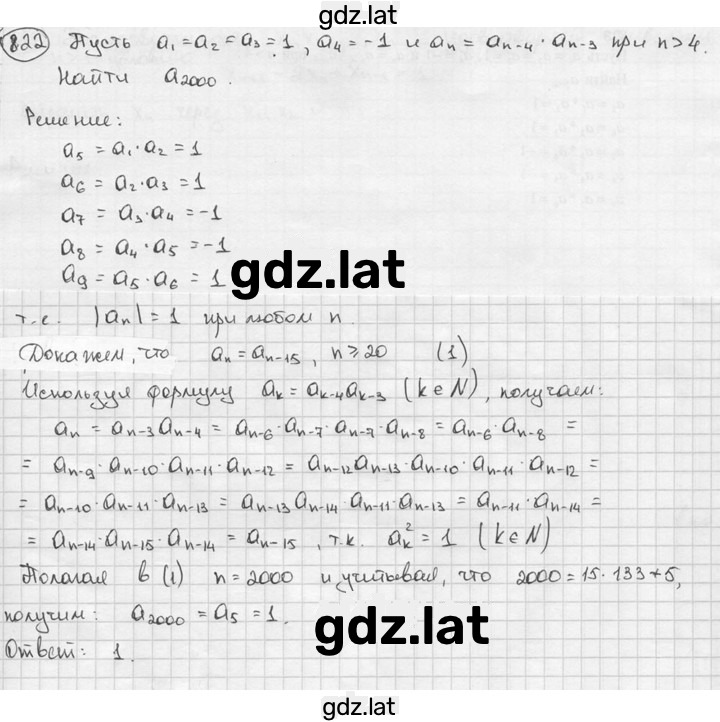 gdz.lat
822 Пусть a₁=a₂=a₃=1, a₄=-1 и aₙ=aₙ₋₄·aₙ₋₃ при n>4.
Найти a₂₀₀₀.
Решение:
a₅ = a₁·a₂ = 1
a₆ = a₂·a₃ = 1
a₇ = a₃·a₄ = -1
a₈ = a₄·a₅ = -1
a₉ = a₅·a₆ = 1
gdz.lat
т.е. |aₙ|=1 при любом n.
Докажем, что aₙ=aₙ₋₁₅, n⩾20 (1)
Используя формулу aₖ=aₖ₋₄aₖ₋₃ (k∈N), получаем:
aₙ = aₙ₋₃aₙ₋₄ = aₙ₋₆·aₙ₋₇·aₙ₋₇·aₙ₋₈ = aₙ₋₆·aₙ₋₈ =
= aₙ₋₉·aₙ₋₁₀·aₙ₋₁₁·aₙ₋₁₂ = aₙ₋₁₂aₙ₋₁₃·aₙ₋₁₀·aₙ₋₁₁·aₙ₋₁₂ =
= aₙ₋₁₀·aₙ₋₁₁·aₙ₋₁₃ = aₙ₋₁₃aₙ₋₁₄·aₙ₋₁₁·aₙ₋₁₃ = aₙ₋₁₁·aₙ₋₁₄ =
= aₙ₋₁₄·aₙ₋₁₅·aₙ₋₁₄ = aₙ₋₁₅, т.к. aₖ²=1 (k∈N)
Полагая в (1) n=2000 и учитывая, что 2000=15·133+5,
получим: a₂₀₀₀=a₅=1.
gdz.lat
Ответ: 1.
gdz.lat